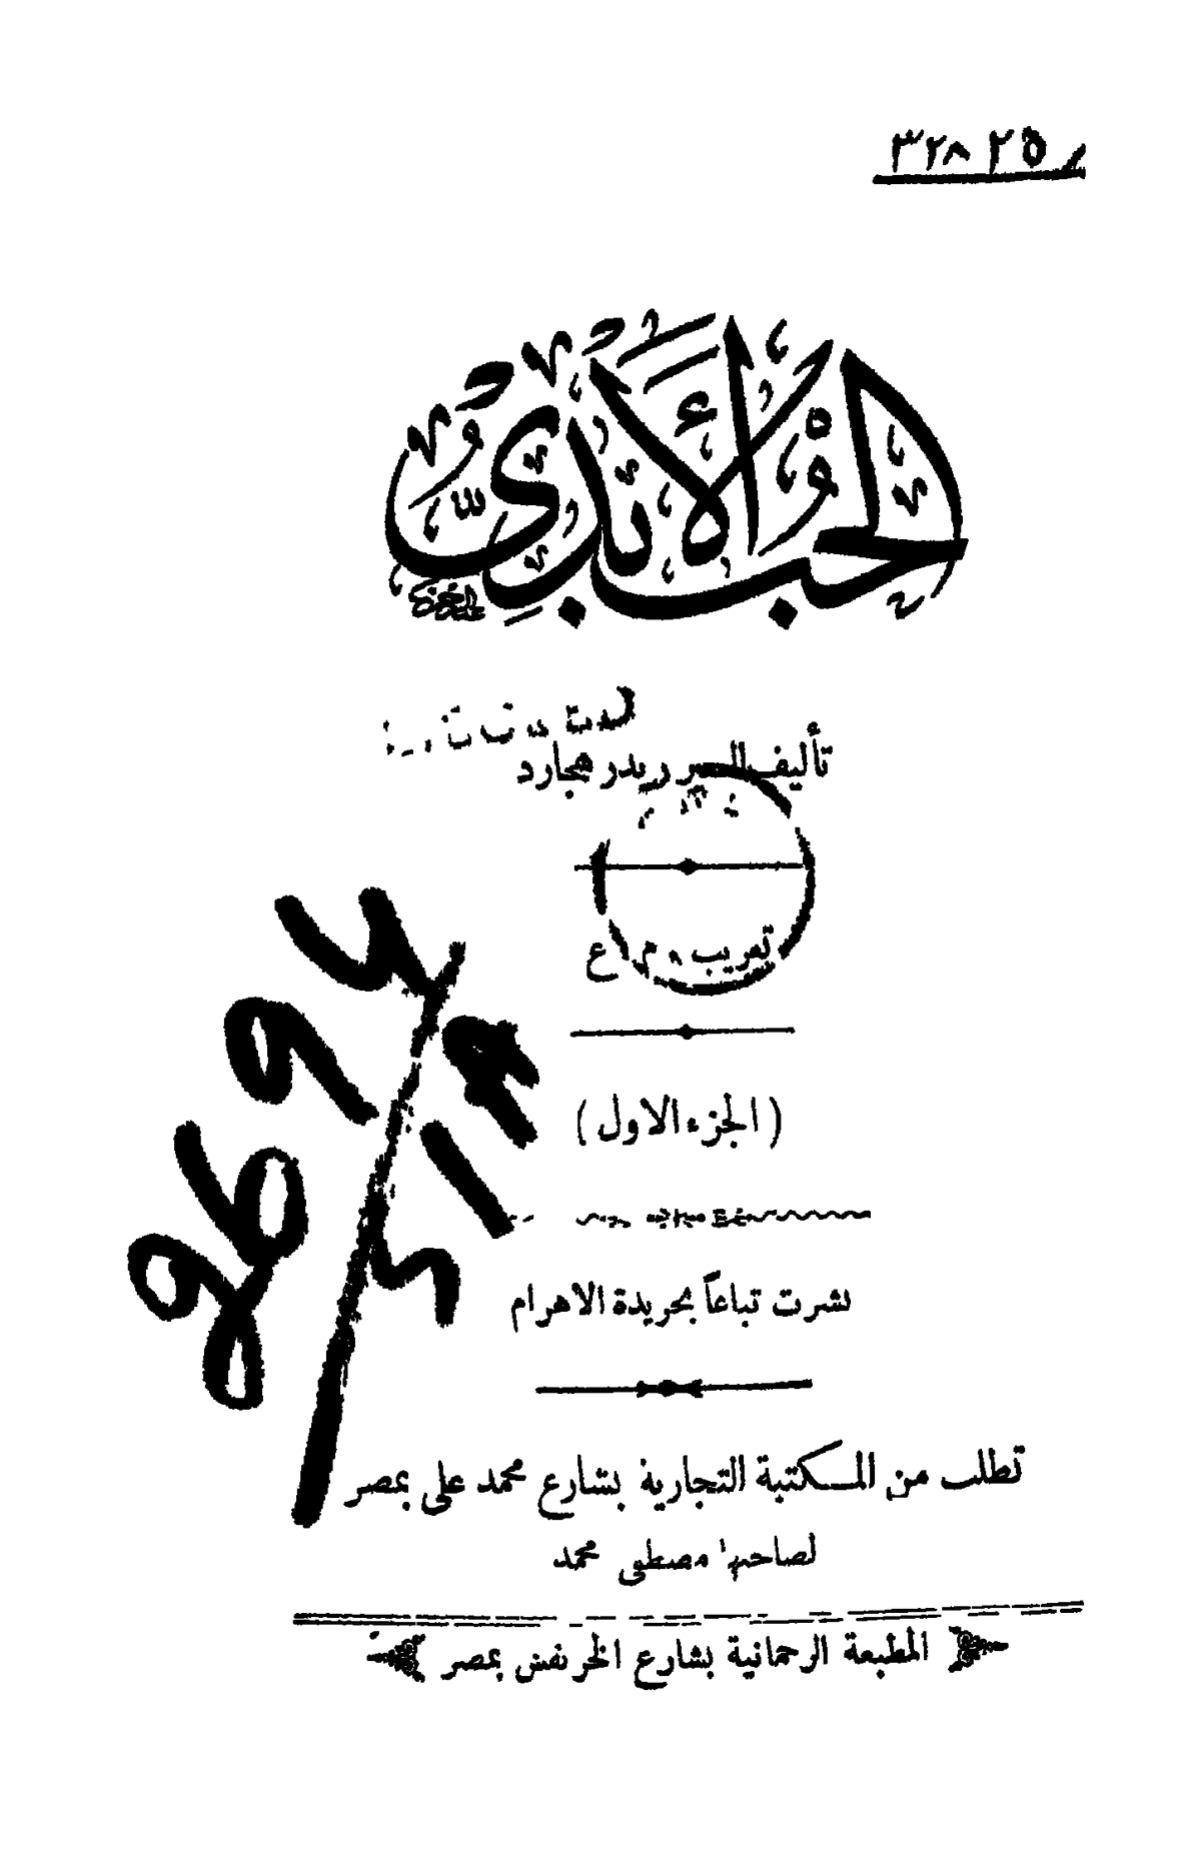 الحب الأبدي
تأليف السير ريدر هجارد
تعريب . م . ع
( الجزء الاول )
نشرت تباعاً بجريدة الاهرام
تطلب من المكتبة التجارية بشارع محمد على بمصر
لصاحبها مصطفى محمد
المطبعة الرحمانية بشارع الخرنفش بمصر